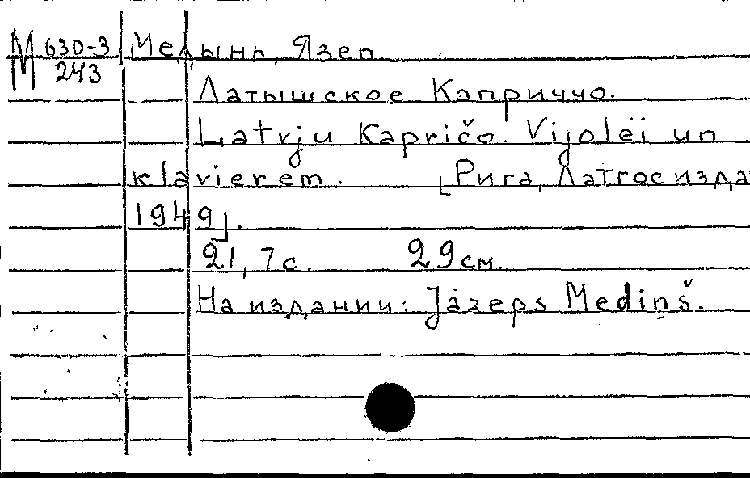 М 630-3 Медынь, Язеп
243
Латышское Каприччо.
Latvju Kapričo. Vijolei un
klavierem. [Рига, Латгосизда
1949].
21, 7 с. 29 см.
На издании: Jāzeps Mediņš.